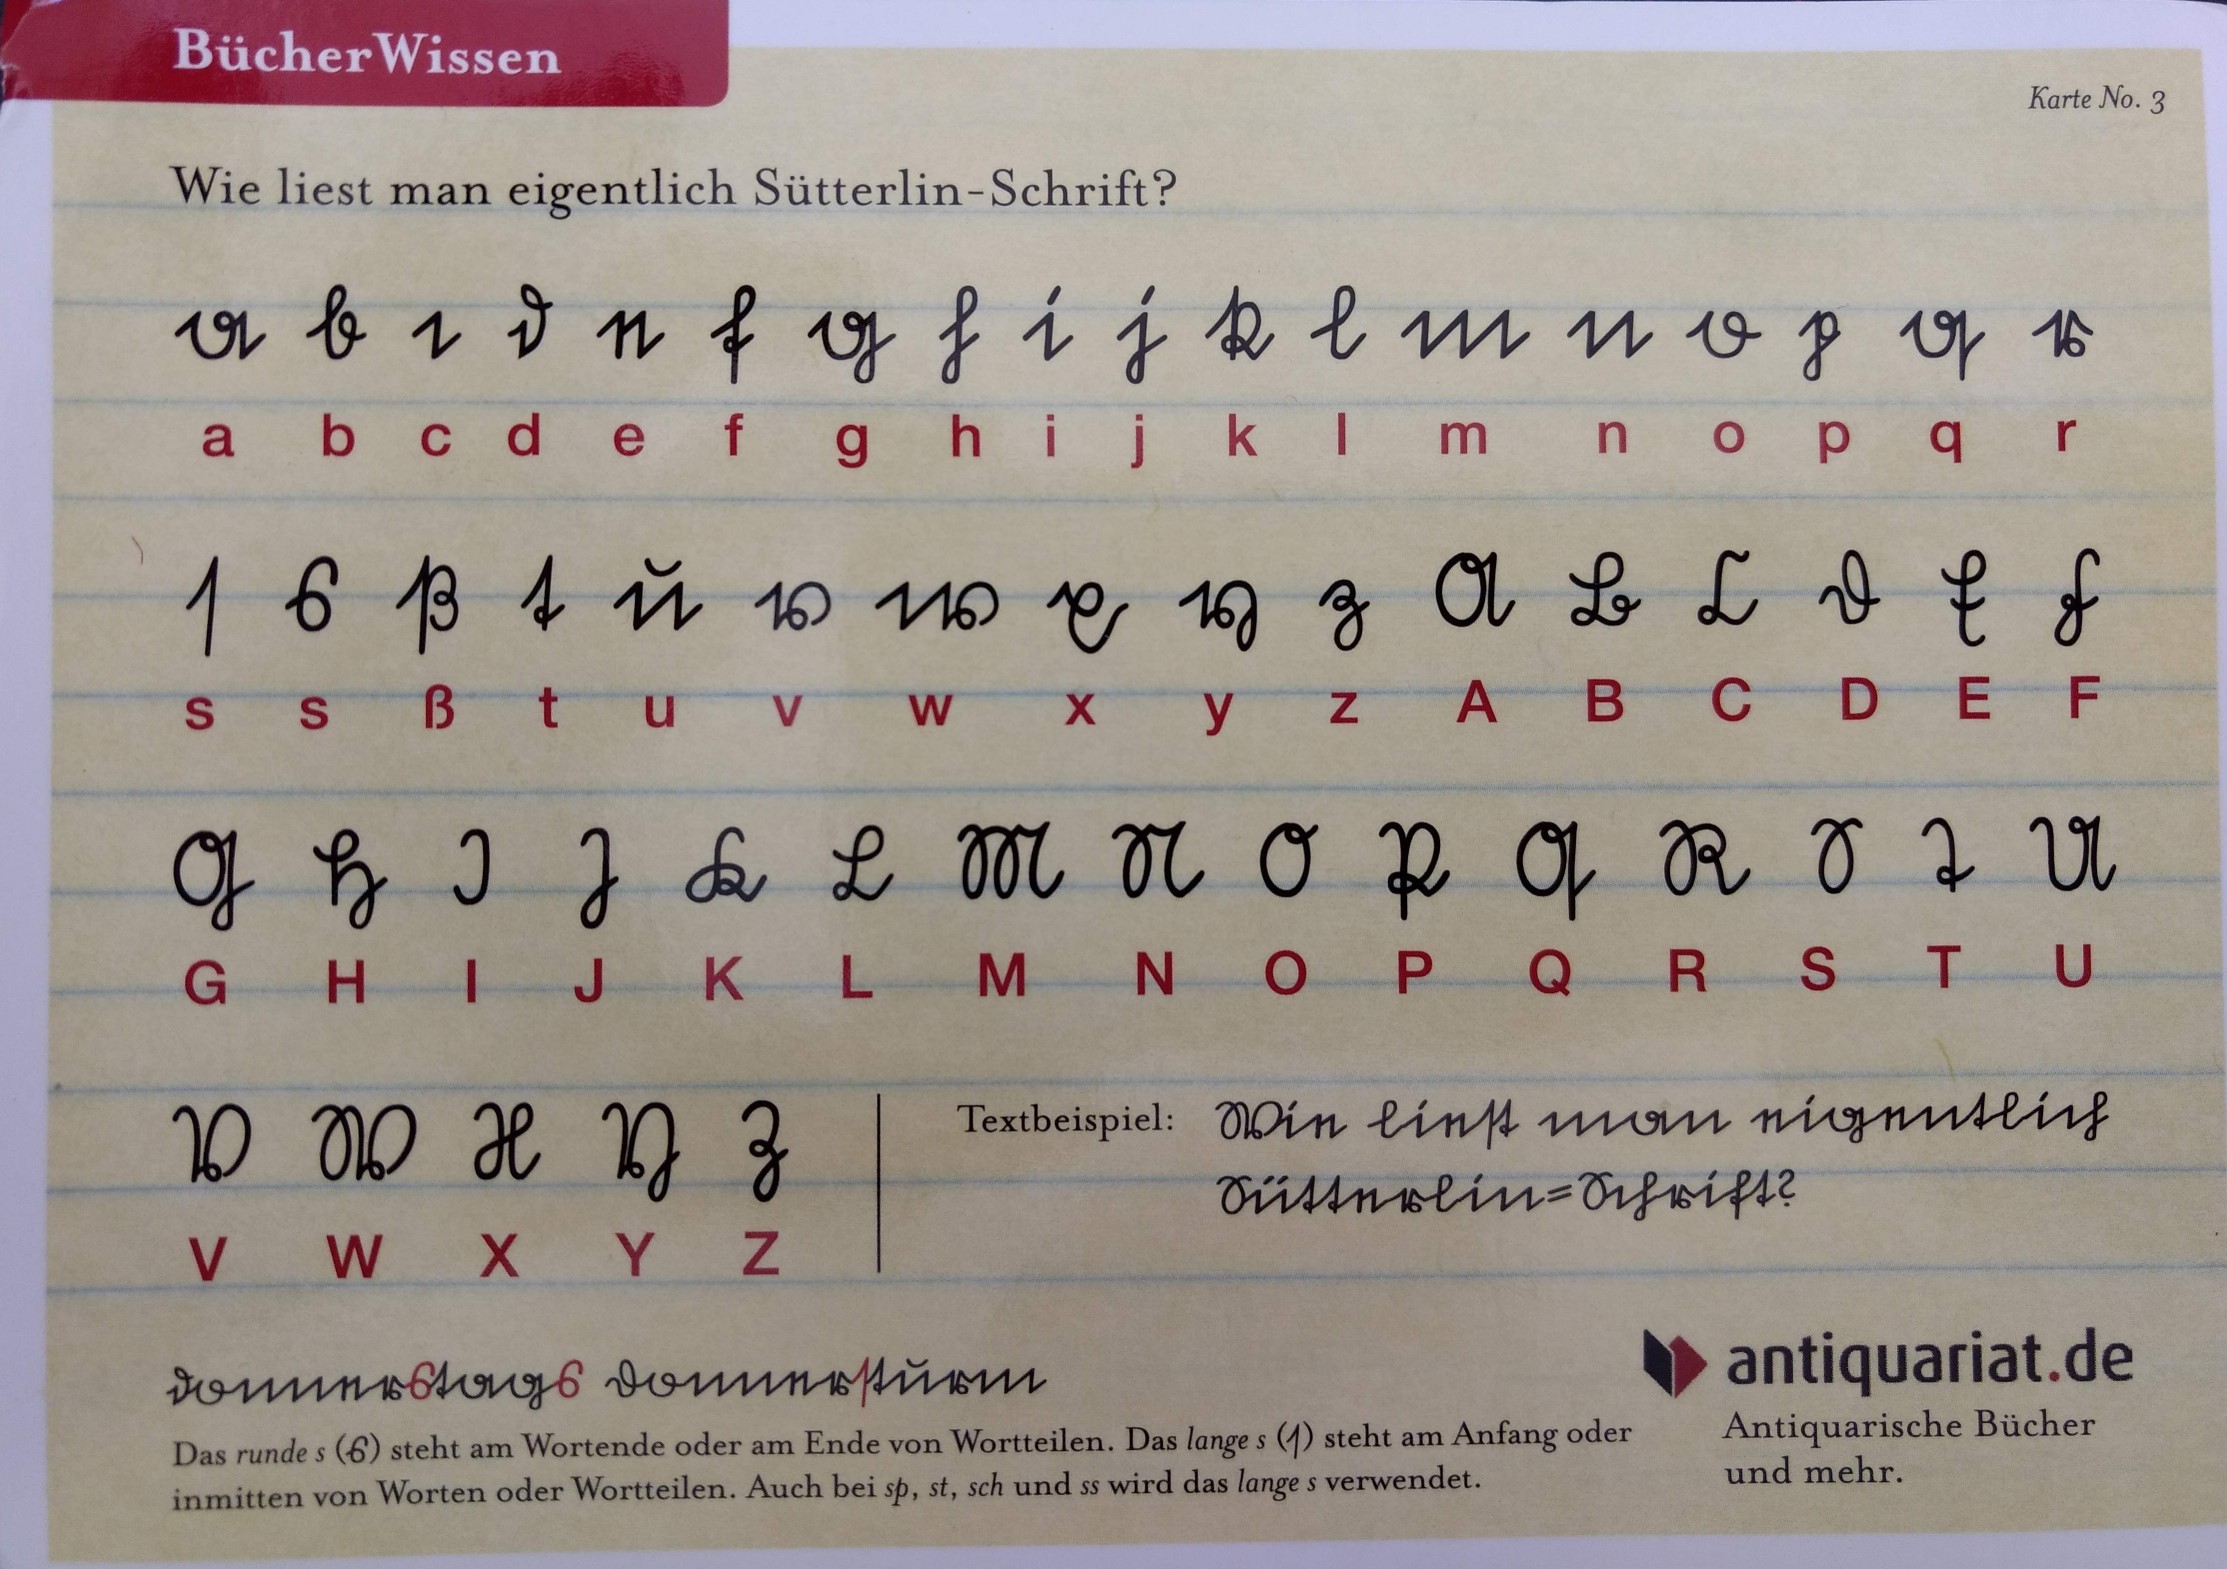 BücherWissen
Karte No. 3
Wie liest man eigentlich Sütterlin-Schrift?
a b c d e f g h i j k l m n o p q r
a b c d e f g h i j k l m n o p q r
ſ s ß t u v w x y z A B C D E F
s s ß t u v w x y z A B C D E F
G H I J K L M N O P Q R S T U
G H I J K L M N O P Q R S T U
V W X Y Z
V W X Y Z
Textbeispiel: Wie lieſt man eigentlich
Sütterlin=Schrift?
donnerstags Donnerſturm
Das runde s (s) steht am Wortende oder am Ende von Wortteilen. Das lange s (ſ) steht am Anfang oder
inmitten von Worten oder Wortteilen. Auch bei sp, st, sch und ss wird das lange s verwendet.
antiquariat.de
Antiquarische Bücher
und mehr.